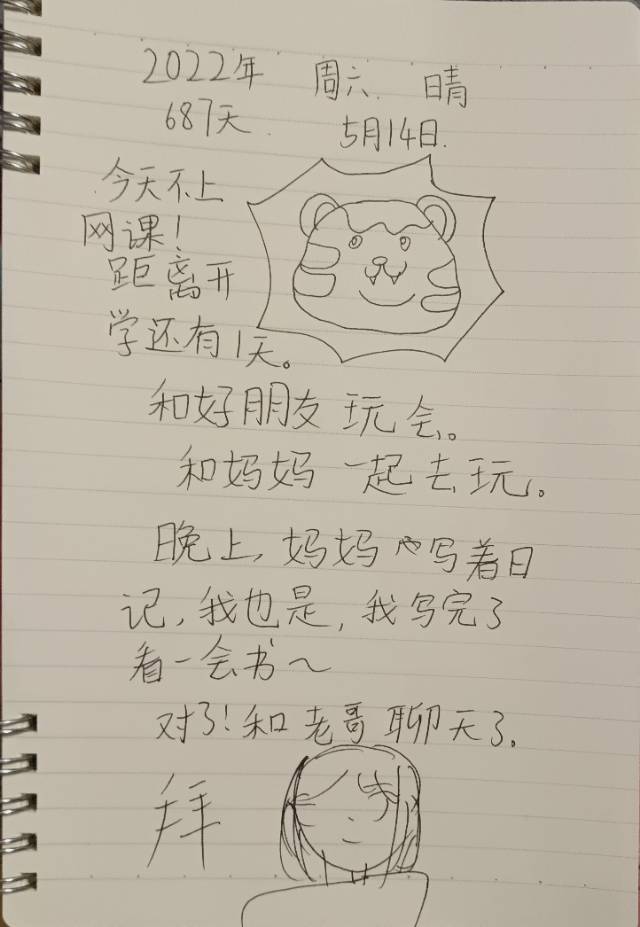 2022年 周六 晴
687天. 5月14日.
今天不上
网课！
距离开
学还有1天。
和好朋友玩会。
和妈妈一起去玩。
晚上，妈妈也写着日
记，我也是，我写完了
看一会书～
对了！和老哥聊天了。
拜